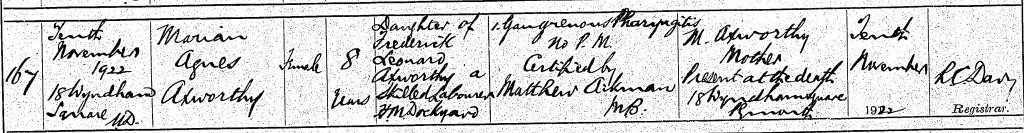 167
Tenth
November
1922
18 Wyndham
Square U.D.
Marian
Agnes
Axworthy
Female
8
Years
Daughter of
Frederick
Leonard
Axworthy a
Skilled Labourer
H M Dockyard
1. Gangrenous Pharyngitis
No P.M.
Certified by
Matthew Aikman
M.B.
M. Axworthy
Mother
Present at the death
18 Wyndham Square
Tenth
November
1922
Registrar.